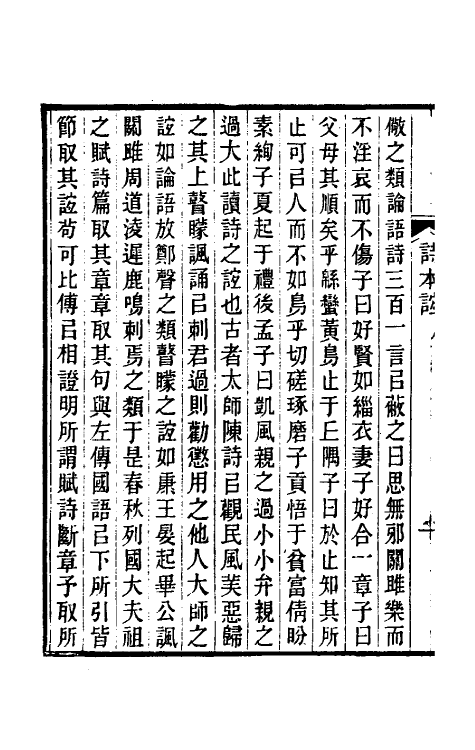 詩本誼
儆之類論語詩三百一言㠯蔽之曰思無邪關雎樂而
不淫哀而不傷子曰好賢如緇衣妻子好合一章子曰
父母其順矣乎緜蠻黃鳥止于丘隅子曰於止知其所
止可㠯人而不如鳥乎切磋琢磨子貢悟于貧富倩盼
素絢子夏起于禮後孟子曰凱風親之過小小弁親之
過大此讀詩之誼也古者太師陳詩㠯觀民風美惡歸
之其上瞽矇諷誦㠯刺君過則勸懲用之他人大師之
誼如論語放鄭聲之類瞽矇之誼如康王晏起畢公諷
關雎周道淩遲鹿鳴刺焉之類于是春秋列國大夫祖
之賦詩篇取其章章取其句與左傳國語㠯下所引皆
節取其誼苟可比傅㠯相證明所謂賦詩斷章予取所